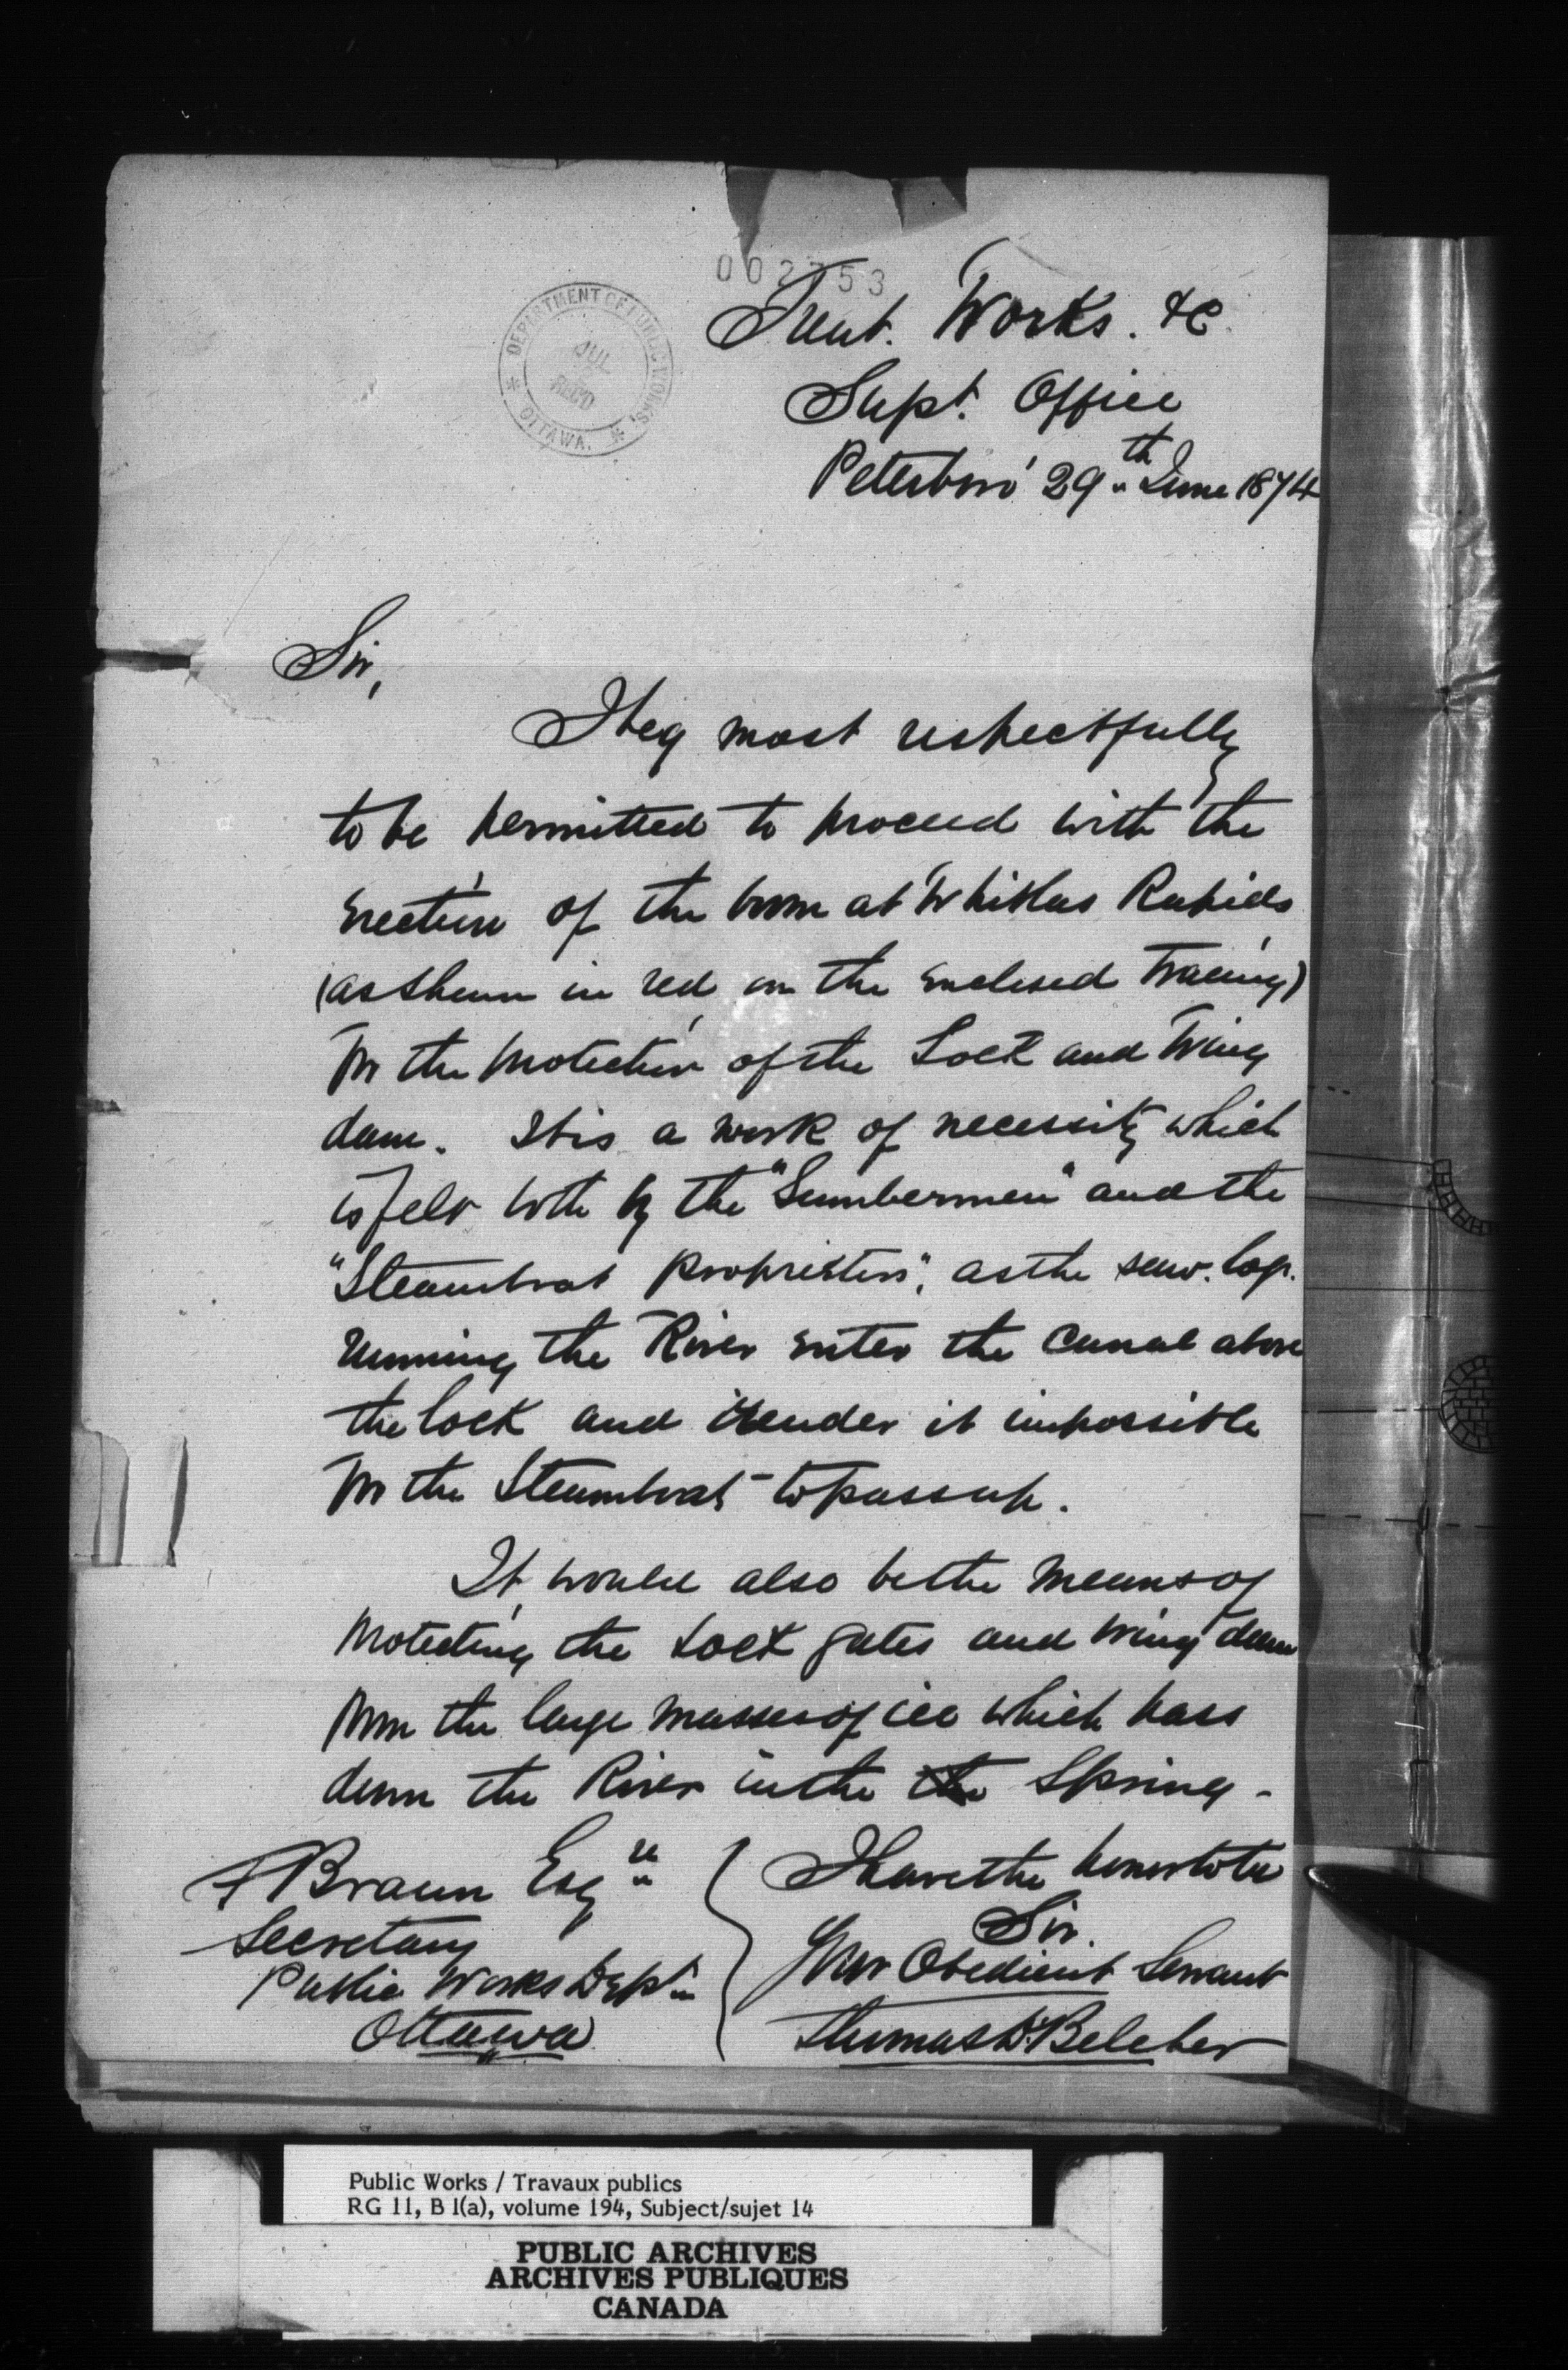 002753
DEPARTMENT OF PUBLIC WORKS.
JUL
REC'D
* OTTAWA. *
Trent. Works. &c.
Supt. Office
Peterboro' 29th June 1874
Sir,
I beg most respectfully
to be permitted to proceed with the
erection of the boom at Whitlas Rapids
(as shewn in red, on the enclosed tracing)
for the protection of the Lock and Wing
dam. It is a work of necessity which
is felt both by the "Lumbermen" and the
"Steamboat proprietors", as the saw. logs.
running the River enter the Canal above
the lock and render it impossible
for the Steamboat to pass up.
It would also be the means of
protecting the Lock gates and wing dam
from the large masses of ice which pass
down the River in the the Spring -
F Braun Esqre
Secretary
Public Works Dept
Ottawa
I have the honor to be
Sir.
Your Obedient Servant
Thomas D. Belcher
Public Works / Travaux publics
RG 11, B 1(a), volume 194, Subject/sujet 14
PUBLIC ARCHIVES
ARCHIVES PUBLIQUES
CANADA